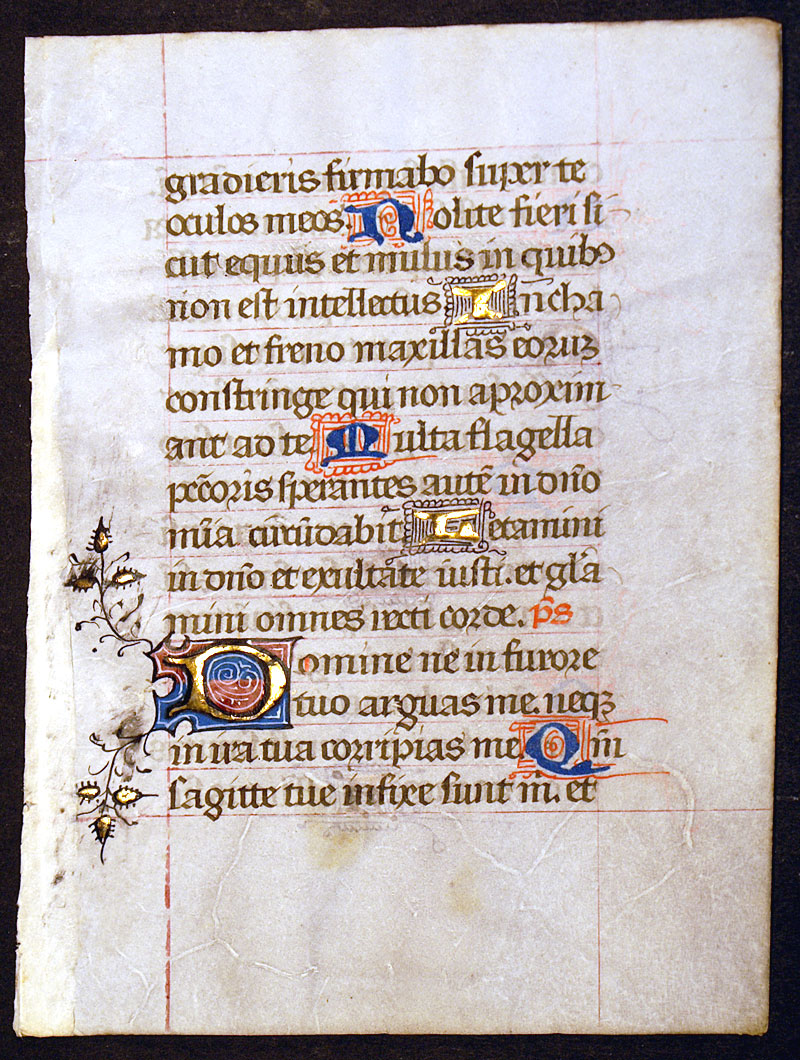 gradieris firmabo super te
oculos meos. Nolite fieri si
cut equus et mulus in quibꝰ
non est intellectus In cha
mo et freno maxillas eoruꝫ
constringe qui non aproxim
ant ad te Multa flagella
pc̄coris sperantes autē in dn̄o
mīa circūdabit Letamini
in dn̄o et exultate iusti. et gl̄a
mini omnes recti corde. p̄s
Domine ne in furore
tuo arguas me. neqꝫ
in ira tua corripias me Qm̄
sagitte tue infixe sunt m̄. et